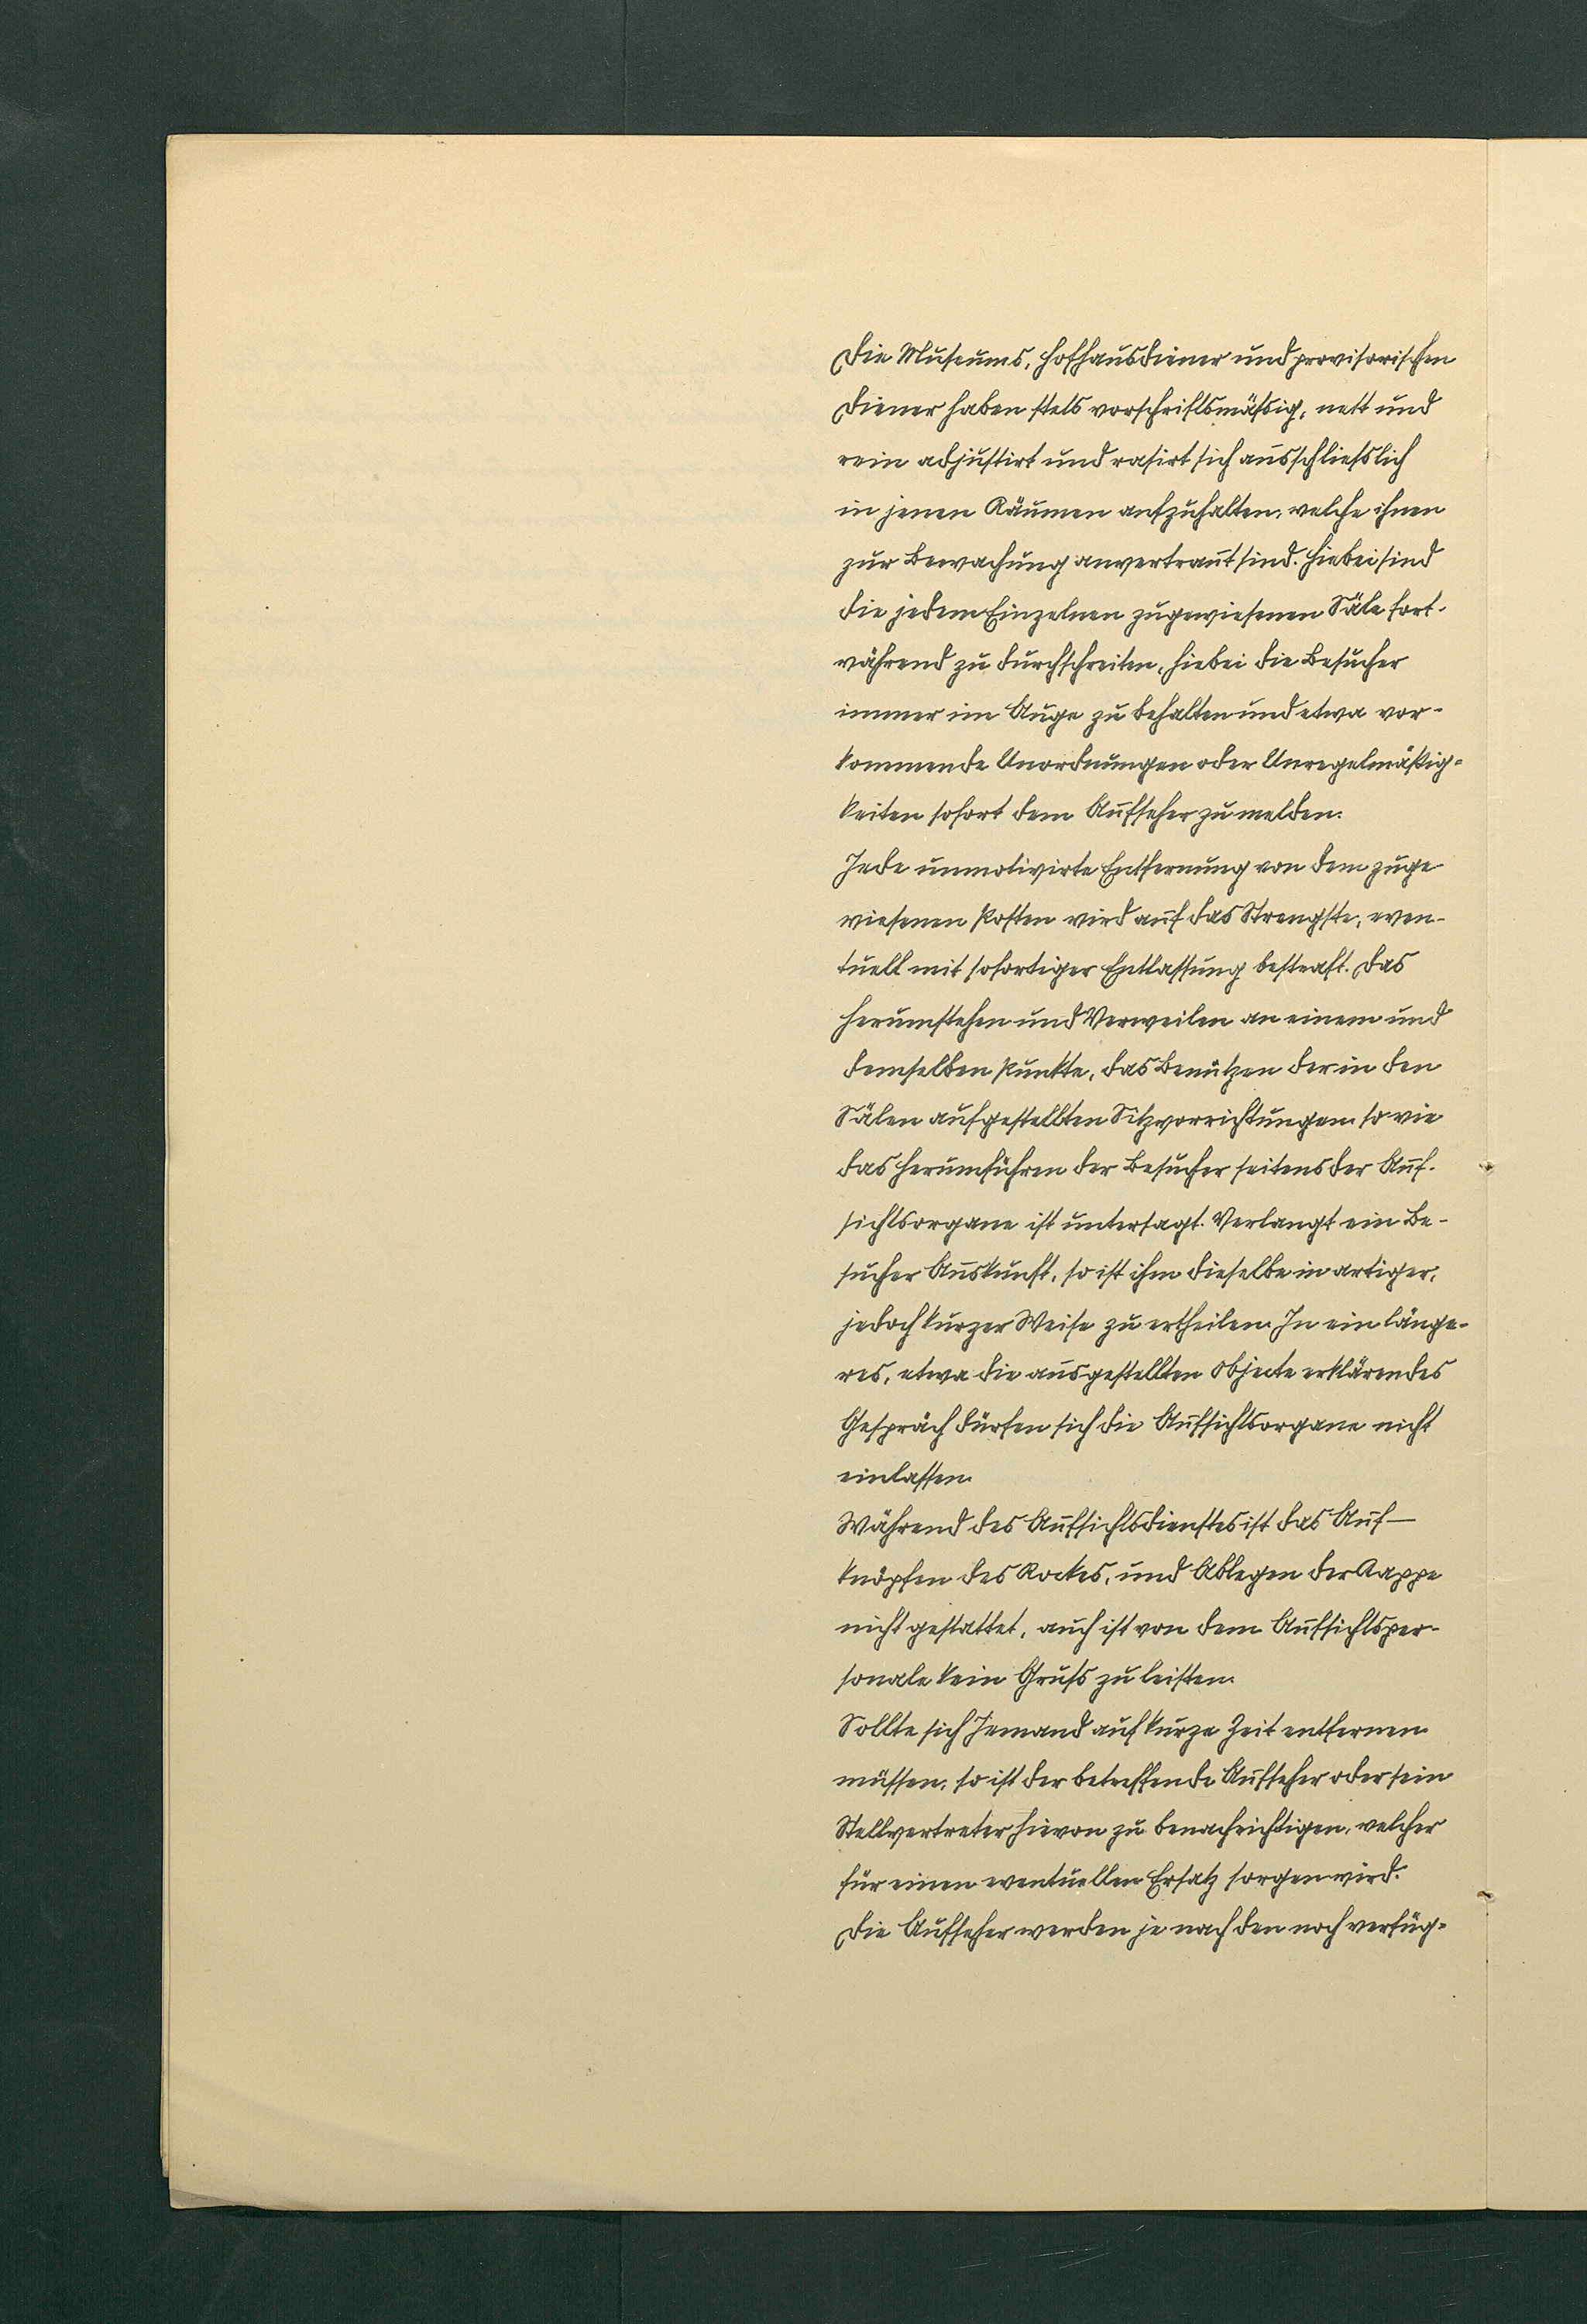 Die Museums, Hofhausdiener und provisorischen
Diener haben stets vorschriftsmäßig, nett und
rein adjustirt und rasirt sich ausschließlich
in jenen Räumen aufzuhalten, welche ihnen
zur Bewachung anvertraut sind. Hiebei sind
die jedem Einzelnen zugewiesenen Säle fort-
während zu durchschreiten, hiebei die Besucher
immer im Auge zu behalten und etwa vor-
kommende Unordnungen oder Unregelmäßig=
keiten sofort dem Aufseher zu melden.
Jede unmotivirte Entfernung von dem zuge-
wiesenen Posten wird auf das Strengste, even-
tuell mit sofortiger Entlassung bestraft. Das
Herumstehen und Verweilen an einem und
demselben Punkte, das Benützen der in den
Sälen aufgestellten Sitzvorrichtungen so wie
das Herumführen der Besucher seitens der Auf-
sichtsorgane ist untersagt. Verlangt ein Be-
sucher Auskunft, so ist ihm dieselbe in artiger,
jedoch kurzer Weise zu ertheilen. In ein länge-
res, etwa die ausgestellten Objecte erklärendes
Gespräch dürfen sich die Aufsichtsorgane nicht
einlassen.
Während des Aufsichtsdienstes ist das Auf-
knöpfen des Rockes, und Ablegen der Kappe
nicht gestattet, auch ist von dem Aufsichtsper-
sonale kein Gruß zu leisten.
Sollte sich Jemand auf kurze Zeit entfernen
müssen, so ist der betreffende Aufseher oder sein
Stellvertreter hievon zu benachrichtigen, welcher
für einen eventuellen Ersatz sorgen wird.
Die Aufseher werden je nach den noch verfüg=